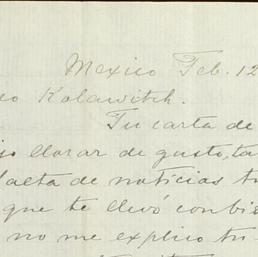 Mexico Feb. 12
Kolawitch.
Tu carta de
llorar de gusto, ta
falta de noticias tu
que te llevó con
no me explico tu